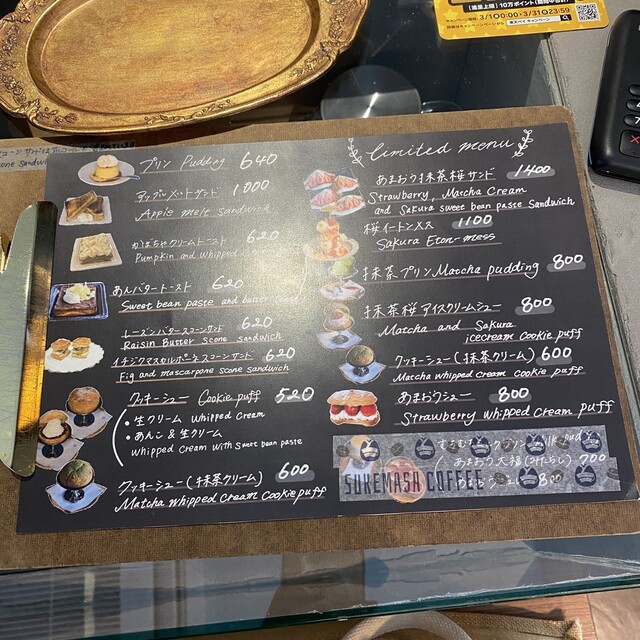 【進呈上限】10万ポイント(期間中合計)
キャンペーン期間 3/1 0:00-3/31 23:59
プリン Pudding 640
アップルメルトサンド 1000
Apple melt sandwich
かぼちゃクリームトースト 620
Pumpkin and whipped
あんバタートースト 620
Sweet bean paste and butter
レーズンバタースコーンサンド 620
Raisin Butter Scone Sandwich
イチジクマスカルポーネスコーンサンド 620
Fig and mascarpone scone sandwich
クッキーシュー Cookie puff 520
・生クリーム Whipped Cream
・あんこ&生クリーム
Whipped Cream with sweet bean paste
クッキーシュー(抹茶クリーム) 600
Matcha whipped cream Cookie puff
Limited menu
あまおう抹茶桜サンド 1400
Strawberry, Matcha Cream
and Sakura sweet bean paste Sandwich
桜イートンメス 1100
Sakura Eton-mess
抹茶プリン Matcha pudding 800
抹茶桜アイスクリームシュー 800
Matcha and Sakura
icecream cookie puff
クッキーシュー(抹茶クリーム) 600
Matcha whipped cream cookie puff
あまおうシュー 800
Strawberry whipped cream puff
あまおう大福 700
800
SUKEMASA COFFEE